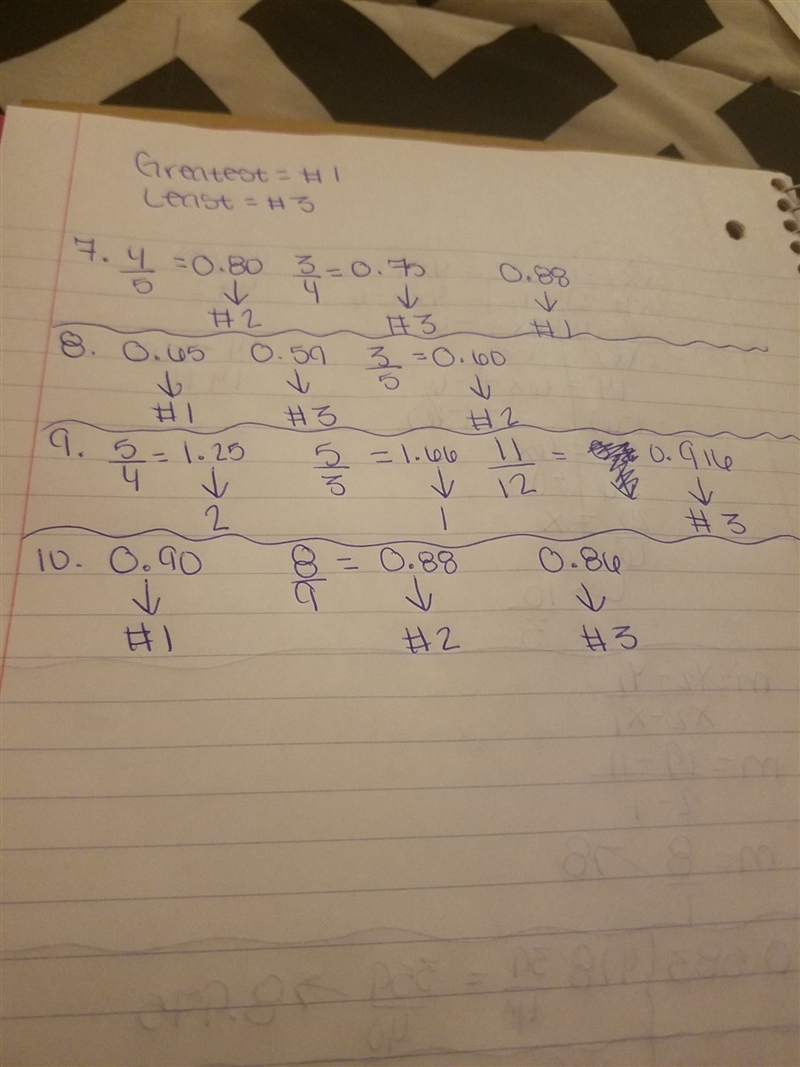 Greatest = #1
Least = #3
7. 4/5 = 0.80 3/4 = 0.75 0.88
↓ ↓ ↓
#2 #3 #1
8. 0.65 0.59 3/5 = 0.60
↓ ↓ ↓
#1 #3 #2
9. 5/4 = 1.25 5/3 = 1.66 11/12 = 0.916
↓ ↓ ↓
2 1 #3
10. 0.90 8/9 = 0.88 0.86
↓ ↓ ↓
#1 #2 #3